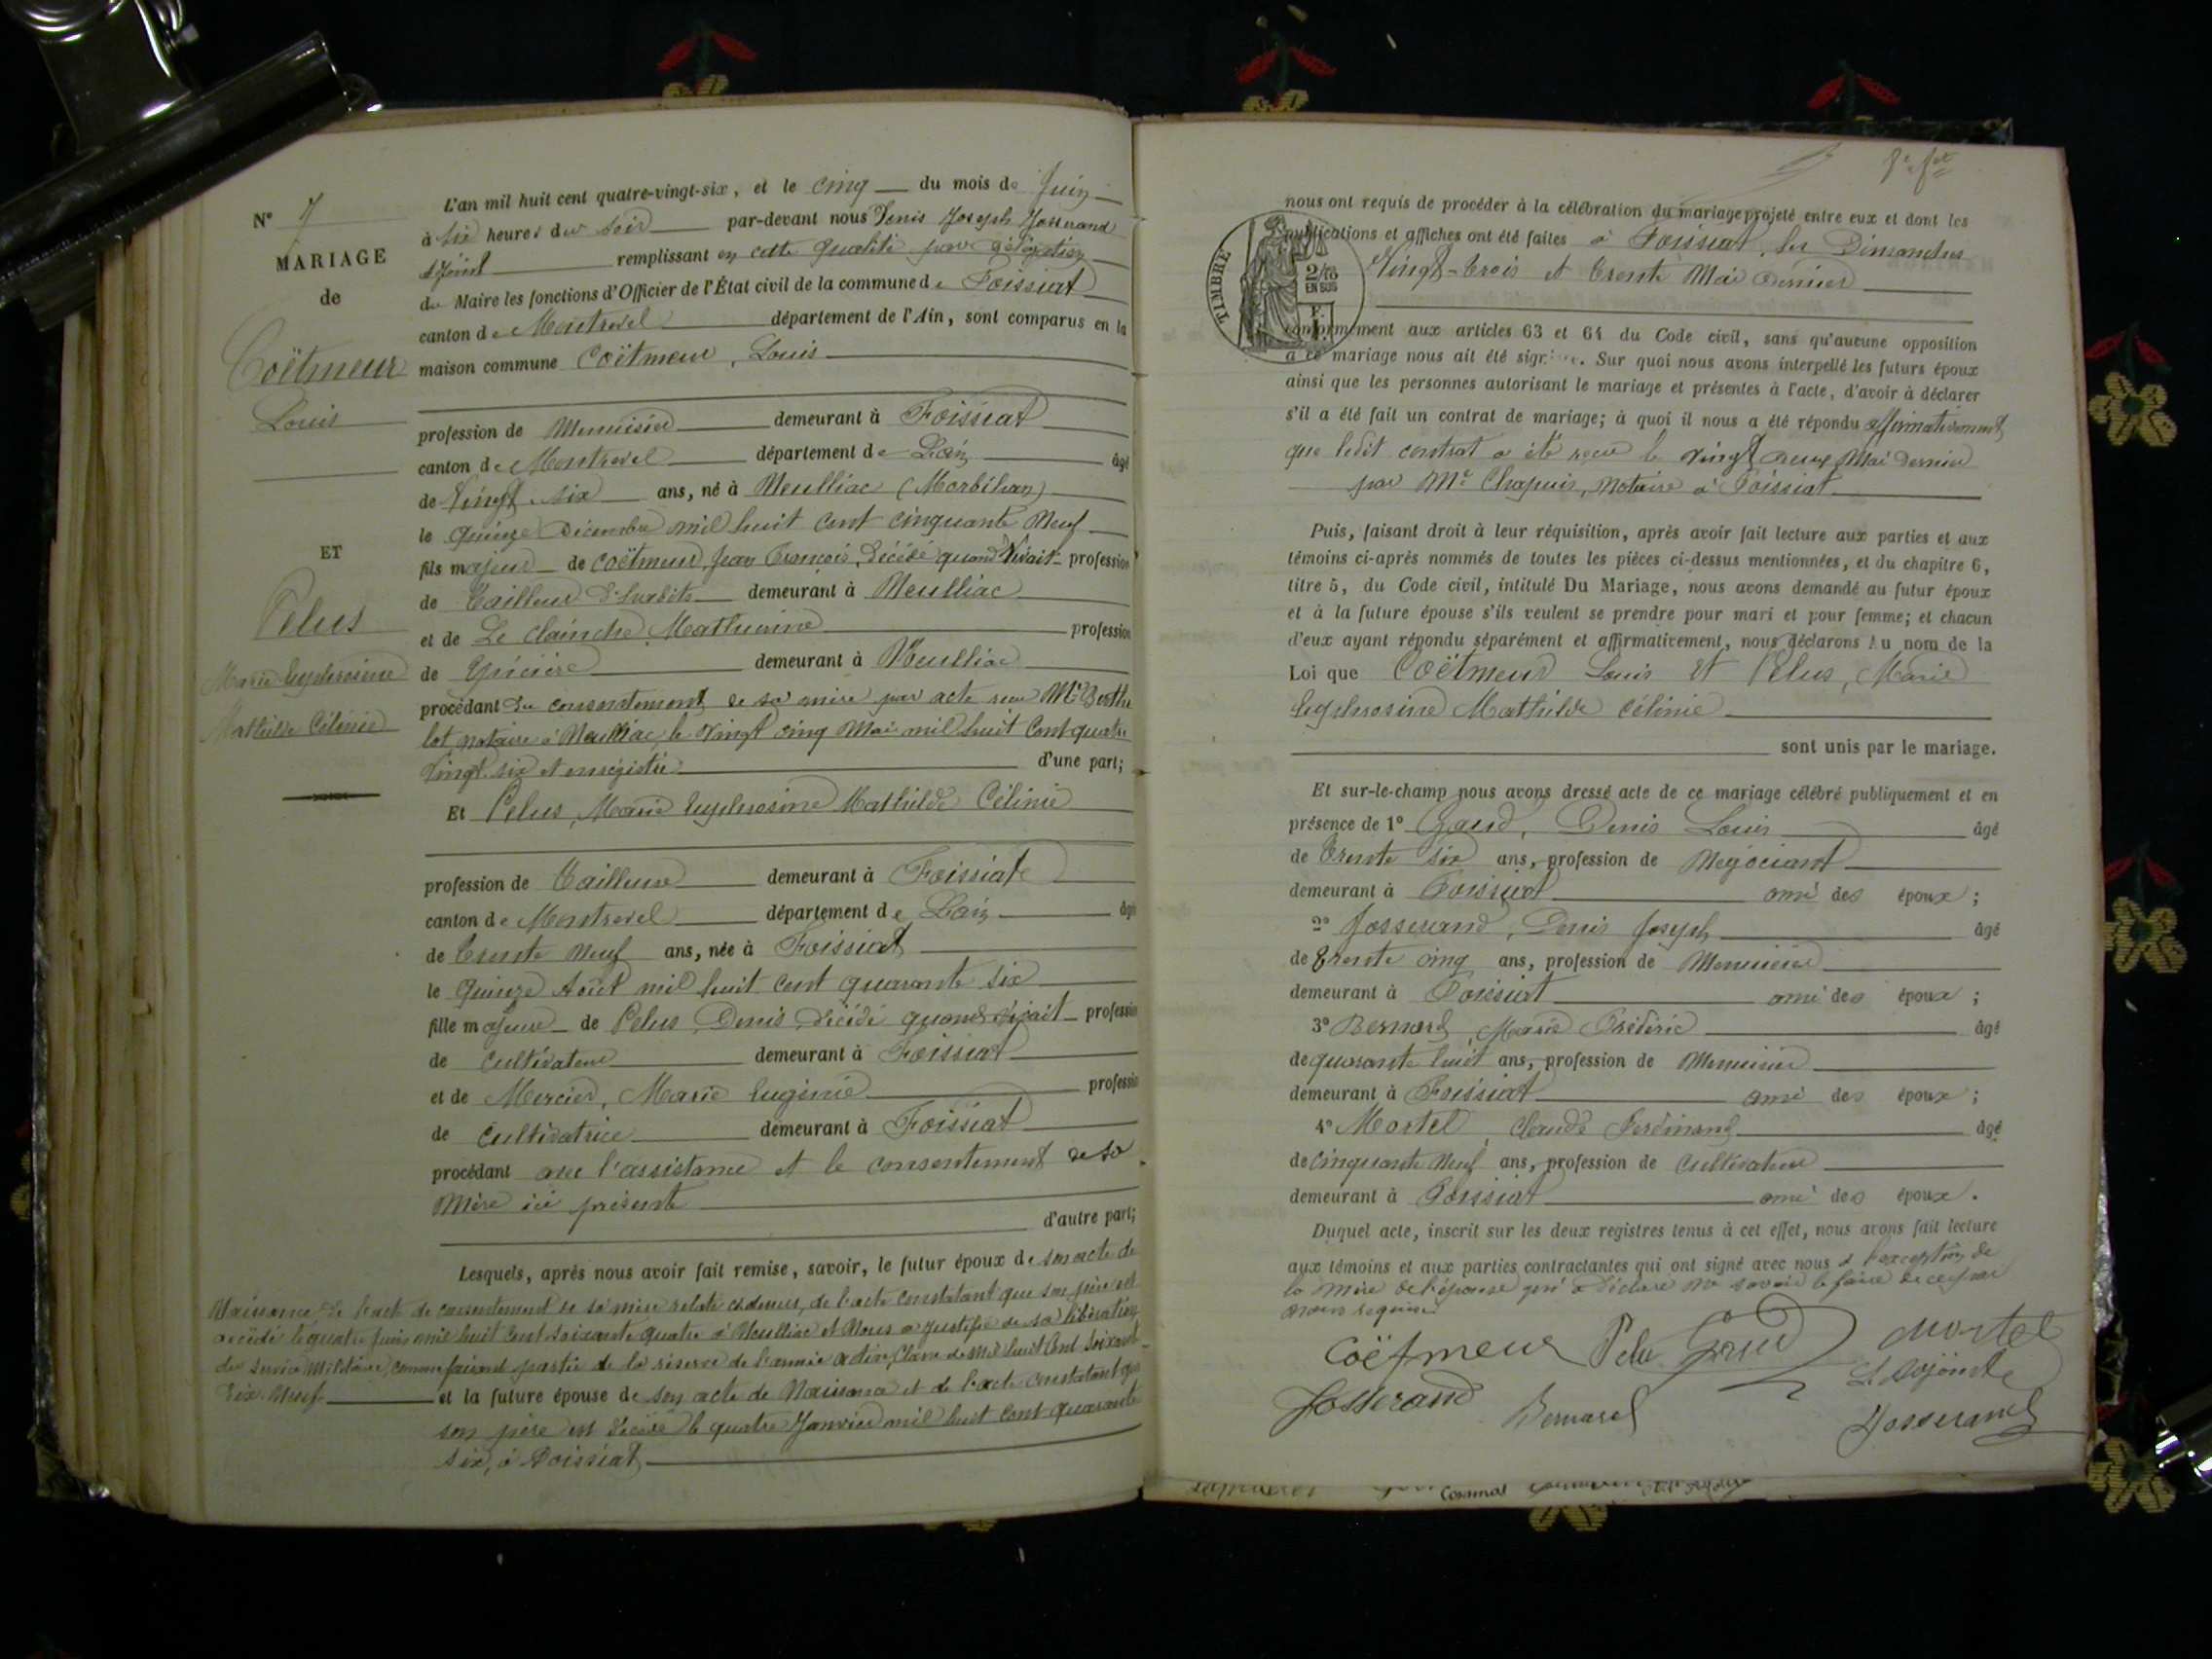 N° 7
MARIAGE
de
Coëtmeur
Louis
ET
Pelus
Marie Euphrosine
Mathilde Célinie
L'an mil huit cent quatre-vingt-six, et le cinq du mois de Juin
à six heures du soir par-devant nous Denis Joseph Josserand
adjoint remplissant en cette qualité par délégation
du Maire les fonctions d'Officier de l'État civil de la commune de Foissiat
canton de Montrevel département de l'Ain, sont comparus en la
maison commune Coëtmeur, Louis
profession de Menuisier demeurant à Foissiat
canton de Montrevel département de L'ain âgé
de Vingt-six ans, né à Neulliac (Morbihan)
le quinze Décembre mil huit cent cinquante Neuf
fils majeur de Coëtmeur, Jean François, décédé quand vivait profession
de Tailleur d'habits demeurant à Neulliac
et de Le Clainche Mathurine profession
de Epicière demeurant à Neulliac
procédant du consentement de sa mère par acte reçu Me Berthe
lot, notaire à Neulliac, le vingt cinq Mai mil huit cent quatre
vingt six et enregistré d'une part;
Et Pelus, Marie Euphrosine Mathilde Célinie
profession de Tailleuse demeurant à Foissiat
canton de Montrevel département de L'ain âgée
de trente neuf ans, née à Foissiat
le quinze Août mil huit cent quarante six
fille majeure de Pelus, Denis, décédé quand vivait profession
de Cultivateur demeurant à Foissiat
et de Mercier, Marie Eugénie profession
de Cultivatrice demeurant à Foissiat
procédant avec l'assistance et le consentement de sa
Mère ici présente
d'autre part;
Lesquels, après nous avoir fait remise, savoir, le futur époux de son acte de
Naissance, de l'acte de consentement de sa mère relaté ci-dessus, de l'acte constatant que son père est
décédé le quatre Juin mil huit cent soixante quatre à Neulliac et Nous a justifié de sa libération
du service Militaire, comme faisant partie de la réserve de l'armée active, Classe de mil huit cent soixante
dix-neuf et la future épouse de son acte de Naissance et de l'acte constatant que
son père est décédé le quatre Janvier mil huit cent quarante
six, à Foissiat
nous ont requis de procéder à la célébration du mariage projeté entre eux et dont les
publications et affiches ont été faites à Foissiat, les Dimanches
Vingt-trois et trente Mai dernier
TIMBRE
2/10
EN SUS
conformément aux articles 63 et 64 du Code civil, sans qu'aucune opposition
à ce mariage nous ait été signifiée. Sur quoi nous avons interpellé les futurs époux
ainsi que les personnes autorisant le mariage et présentes à l'acte, d'avoir à déclarer
s'il a été fait un contrat de mariage; à quoi il nous a été répondu affirmativement
que ledit contrat a été reçu le vingt deux Mai dernier
par Me Chapuis, Notaire à Foissiat
Puis, faisant droit à leur réquisition, après avoir fait lecture aux parties et aux
témoins ci-après nommés de toutes les pièces ci-dessus mentionnées, et du chapitre 6,
titre 5, du Code civil, intitulé Du Mariage, nous avons demandé au futur époux
et à la future épouse s'ils veulent se prendre pour mari et pour femme; et chacun
d'eux ayant répondu séparément et affirmativement, nous déclarons Au nom de la
Loi que Coëtmeur Louis et Pelus, Marie
Euphrosine Mathilde Célinie
sont unis par le mariage.
Et sur-le-champ nous avons dressé acte de ce mariage célébré publiquement et en
présence de 1° Denis Louis âgé
de trente six ans, profession de Négociant
demeurant à Foissiat ami des époux;
2° Josserand, Denis Joseph âgé
de trente cinq ans, profession de Menuisier
demeurant à Foissiat ami des époux;
3° Bernard, Marie Frédéric âgé
de quarante huit ans, profession de Menuisier
demeurant à Foissiat ami des époux;
4° Mortel, Claude Ferdinand âgé
de cinquante neuf ans, profession de Cultivateur
demeurant à Foissiat ami des époux.
Duquel acte, inscrit sur les deux registres tenus à cet effet, nous avons fait lecture
aux témoins et aux parties contractantes qui ont signé avec nous à l'exception de
la mère de l'épouse qui a déclaré ne savoir le faire de ce par
nous requise
Coëtmeur Mortel
L'adjoint
Josserand Bernard Josserand